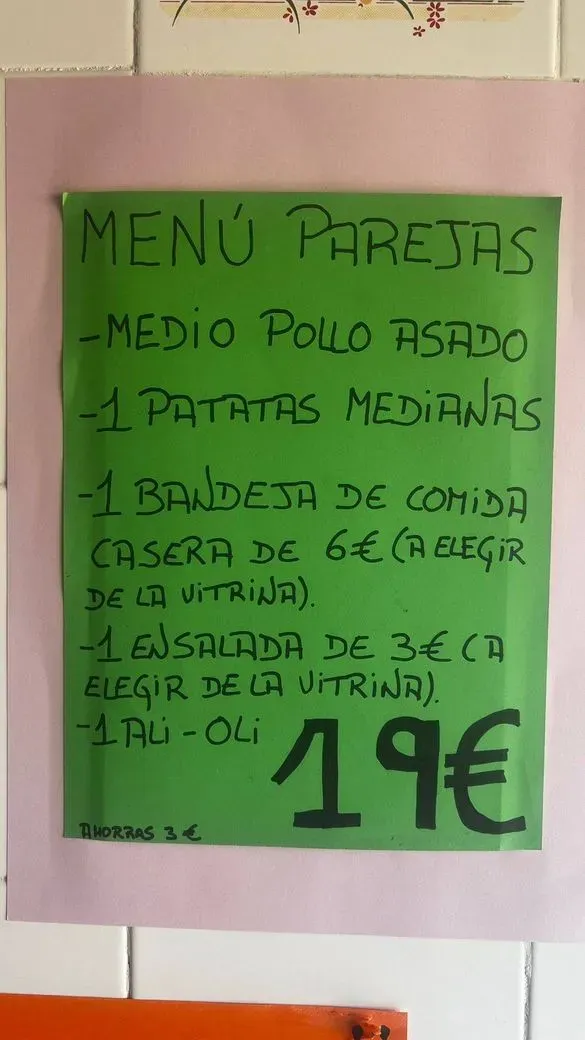 MENÚ PAREJAS
-MEDIO POLLO ASADO
-1 PATATAS MEDIANAS
-1 BANDEJA DE COMIDA
CASERA DE 6€ (A ELEGIR
DE LA VITRINA).
-1 ENSALADA DE 3€ (A
ELEGIR DE LA VITRINA).
-1 ALI-OLI
19€
AHORRAS 3 €